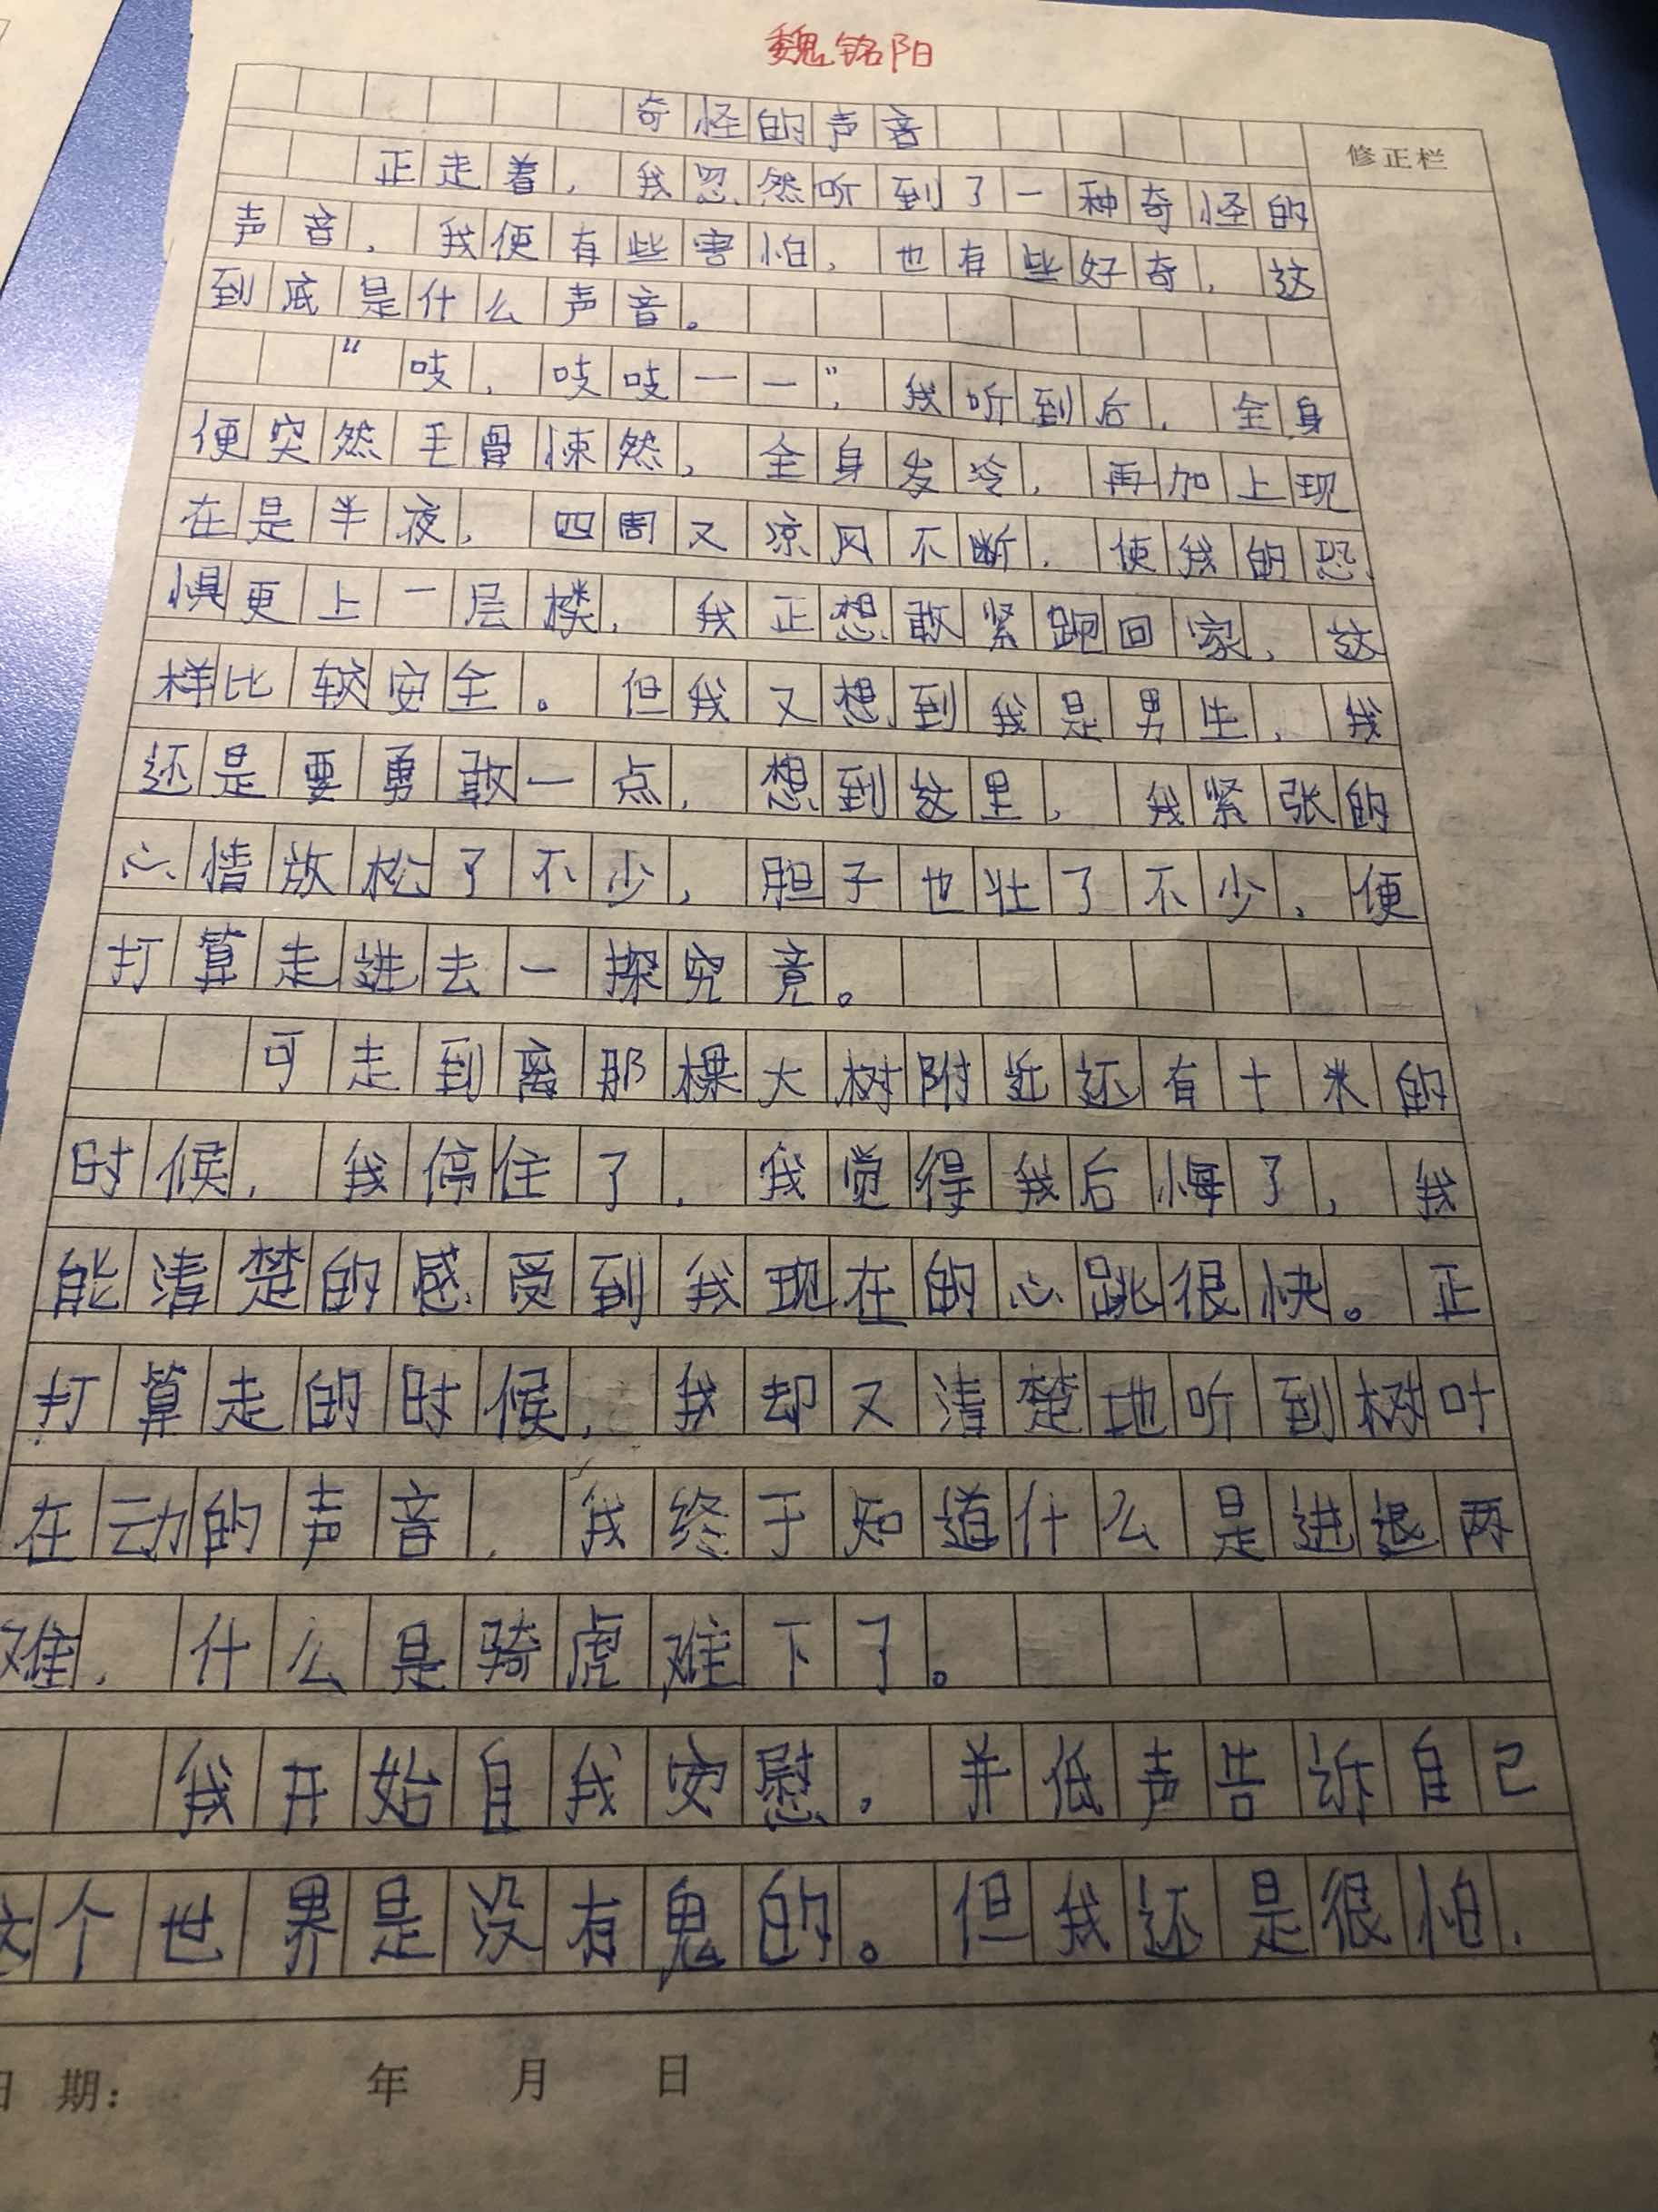 魏铭阳
奇怪的声音
修正栏
正走着，我忽然听到了一种奇怪的
声音，我便有些害怕，也有些好奇，这
到底是什么声音。
“吱，吱吱——”，我听到后，全身
便突然毛骨悚然，全身发冷，再加上现
在是半夜，四周又凉风不断，使我的恐
惧更上一层楼，我正想敢紧跑回家，这
样比较安全。但我又想到我是男生，我
还是要勇敢一点，想到这里，我紧张的
心情放松了不少，胆子也壮了不少，便
打算走进去一探究竟。
可走到离那棵大树附近还有十米的
时候，我停住了，我觉得我后悔了，我
能清楚的感受到我现在的心跳很快。正
打算走的时候，我却又清楚地听到树叶
在动的声音，我终于知道什么是进退两
难，什么是骑虎难下了。
我开始自我安慰，并低声告诉自己
这个世界是没有鬼的。但我还是很怕，
日期： 年 月 日